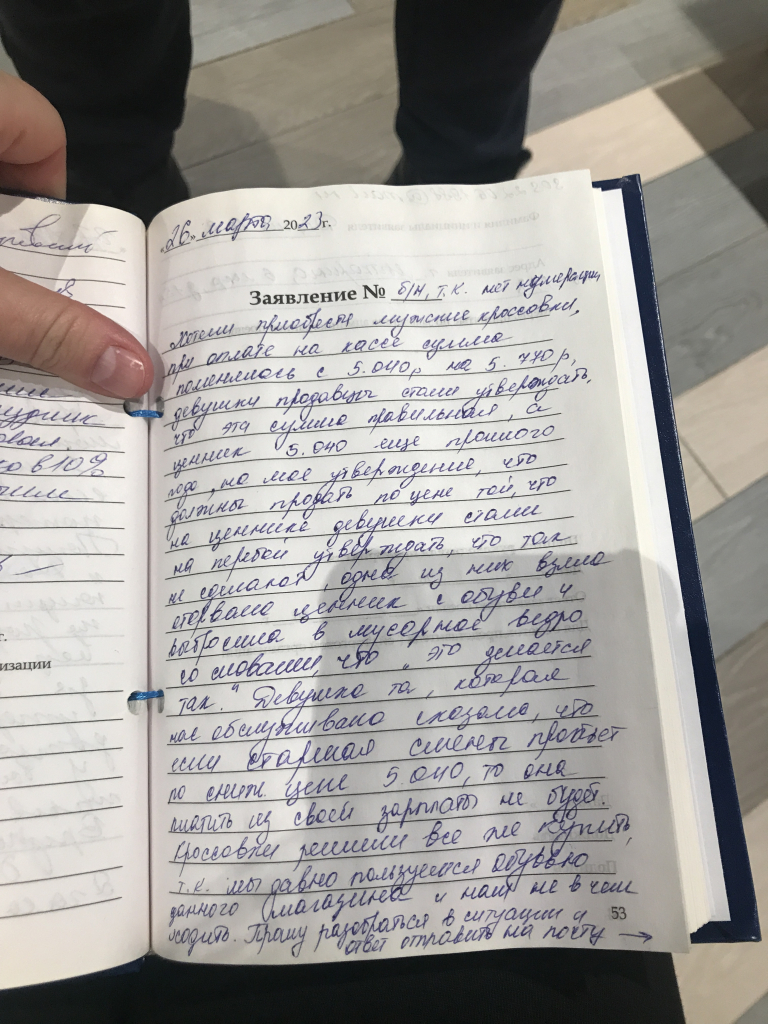 "26" марта 2023г.
Заявление № б/н, т.к. нет нумерации
Хотели приобрести мужские кроссовки,
при оплате на кассе сумма
поменялось с 5.040р на 5.770р,
девушки продавцы стали утверждать,
что эта сумма правильная, а
ценник 5.040 еще прошлого
года, на мое утверждение, что
должны продать по цене той, что
на ценнике девушки стали
на перебой утверждать, что так
не сделают, одна из них взяла
оторвала ценник с обуви и
выбросила в мусорное ведро
со словами, что "это делается
так." Девушка та, которая
нас обслуживала сказала, что
если старшая смены пробьет
по сниж. цене 5.040, то она
платить из своей зарплаты не будет.
Кроссовки решили все же купить,
т.к. мы давно пользуемся обувью
данного магазина и нам не в чем
ходить. Прошу разобраться в ситуации и
ответ отправить на почту →
53
дник
10%
г.
изации